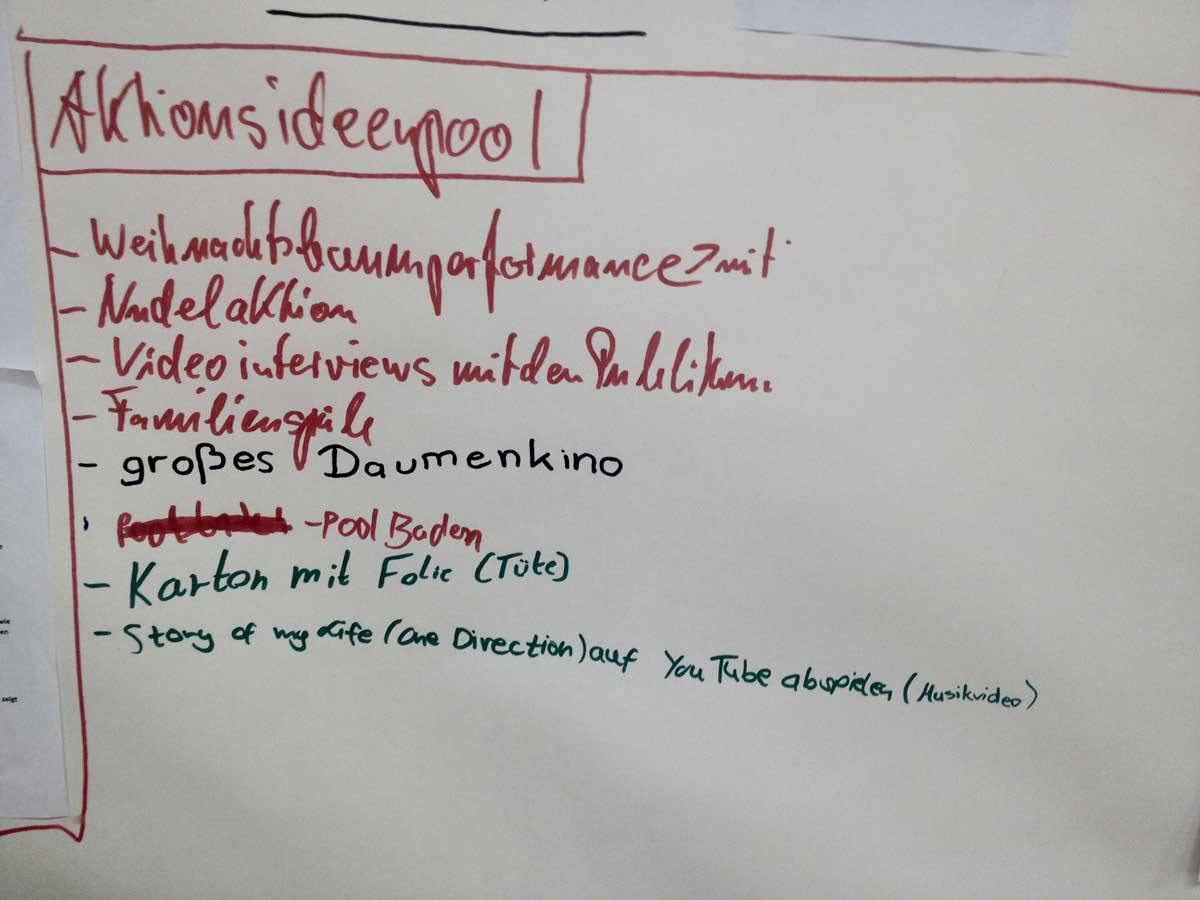 Aktionsideenpool
- Weihnachtsbaumperformance? mit
- Nudelaktion
- Videointerviews mit den Publikum.
- Familienspiele
- großes Daumenkino
- Pool Baden
- Karton mit Folie (Tüte)
- Story of my Life (One Direction) auf YouTube abspielen (Musikvideo)